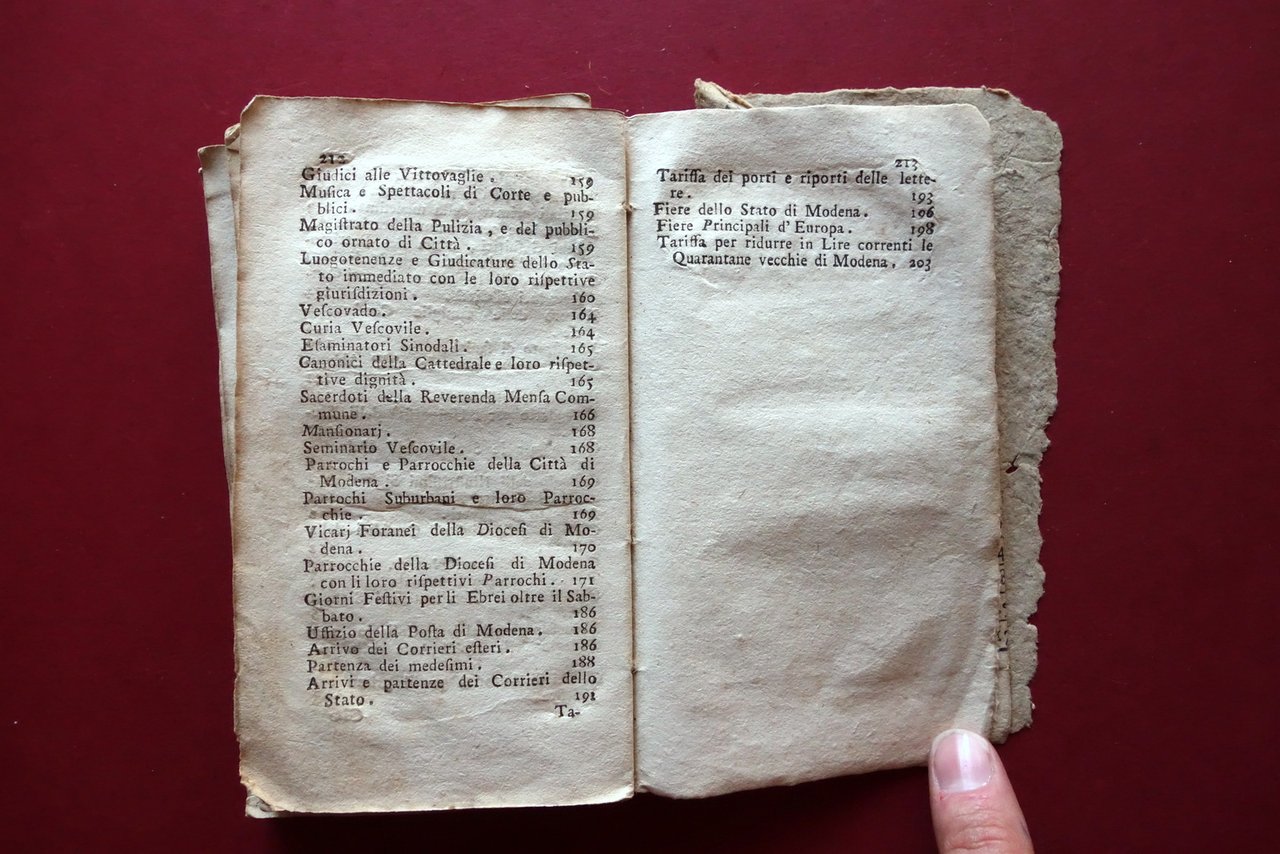 212
Giudici alle Vittovaglie. 159
Musica e Spettacoli di Corte e pub-
blici. 159
Magiſtrato della Pulizia, e del pubbli-
co ornato di Città. 159
Luogotenenze e Giudicature dello Sta-
to immediato con le loro riſpettive
giuriſdizioni. 160
Veſcovado. 164
Curia Veſcovile. 164
Eſaminatori Sinodali. 165
Canonici della Cattedrale e loro riſpet-
tive dignità. 165
Sacerdoti della Reverenda Menſa Com-
mune. 166
Manſionarj. 168
Seminario Veſcovile. 168
Parrochi e Parrocchie della Città di
Modena. 169
Parrochi Suburbani e loro Parroc-
chie. 169
Vicarj Foranei della Diocefi di Mo-
dena. 170
Parrocchie della Diocefi di Modena
con li loro riſpettivi Parrochi. 171
Giorni Feſtivi per li Ebrei oltre il Sab-
bato. 186
Uffizio della Poſta di Modena. 186
Arrivo dei Corrieri eſteri. 186
Partenza dei medeſimi. 188
Arrivi e partenze dei Corrieri dello
Stato. 191
Ta-
213
Tariffa dei porti e riporti delle lette-
re. 193
Fiere dello Stato di Modena. 196
Fiere Principali d'Europa. 198
Tariffa per ridurre in Lire correnti le
Quarantane vecchie di Modena. 203